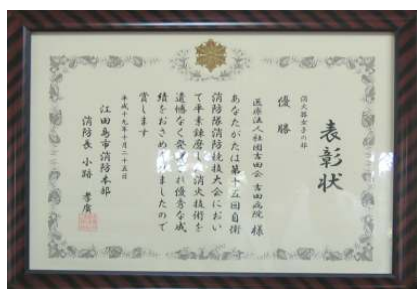 表彰状
消火器女子の部
優勝
医療法人社団吉田会 吉田病院 様
あなたがたは第十五回自衛
消防隊消防競技大会におい
て平素錬磨した消火技術を
遺憾なく発揮され優秀な成
績をおさめられましたので
賞します
平成十九年十月二十五日
江田島市消防本部
消防長 小路 孝廣